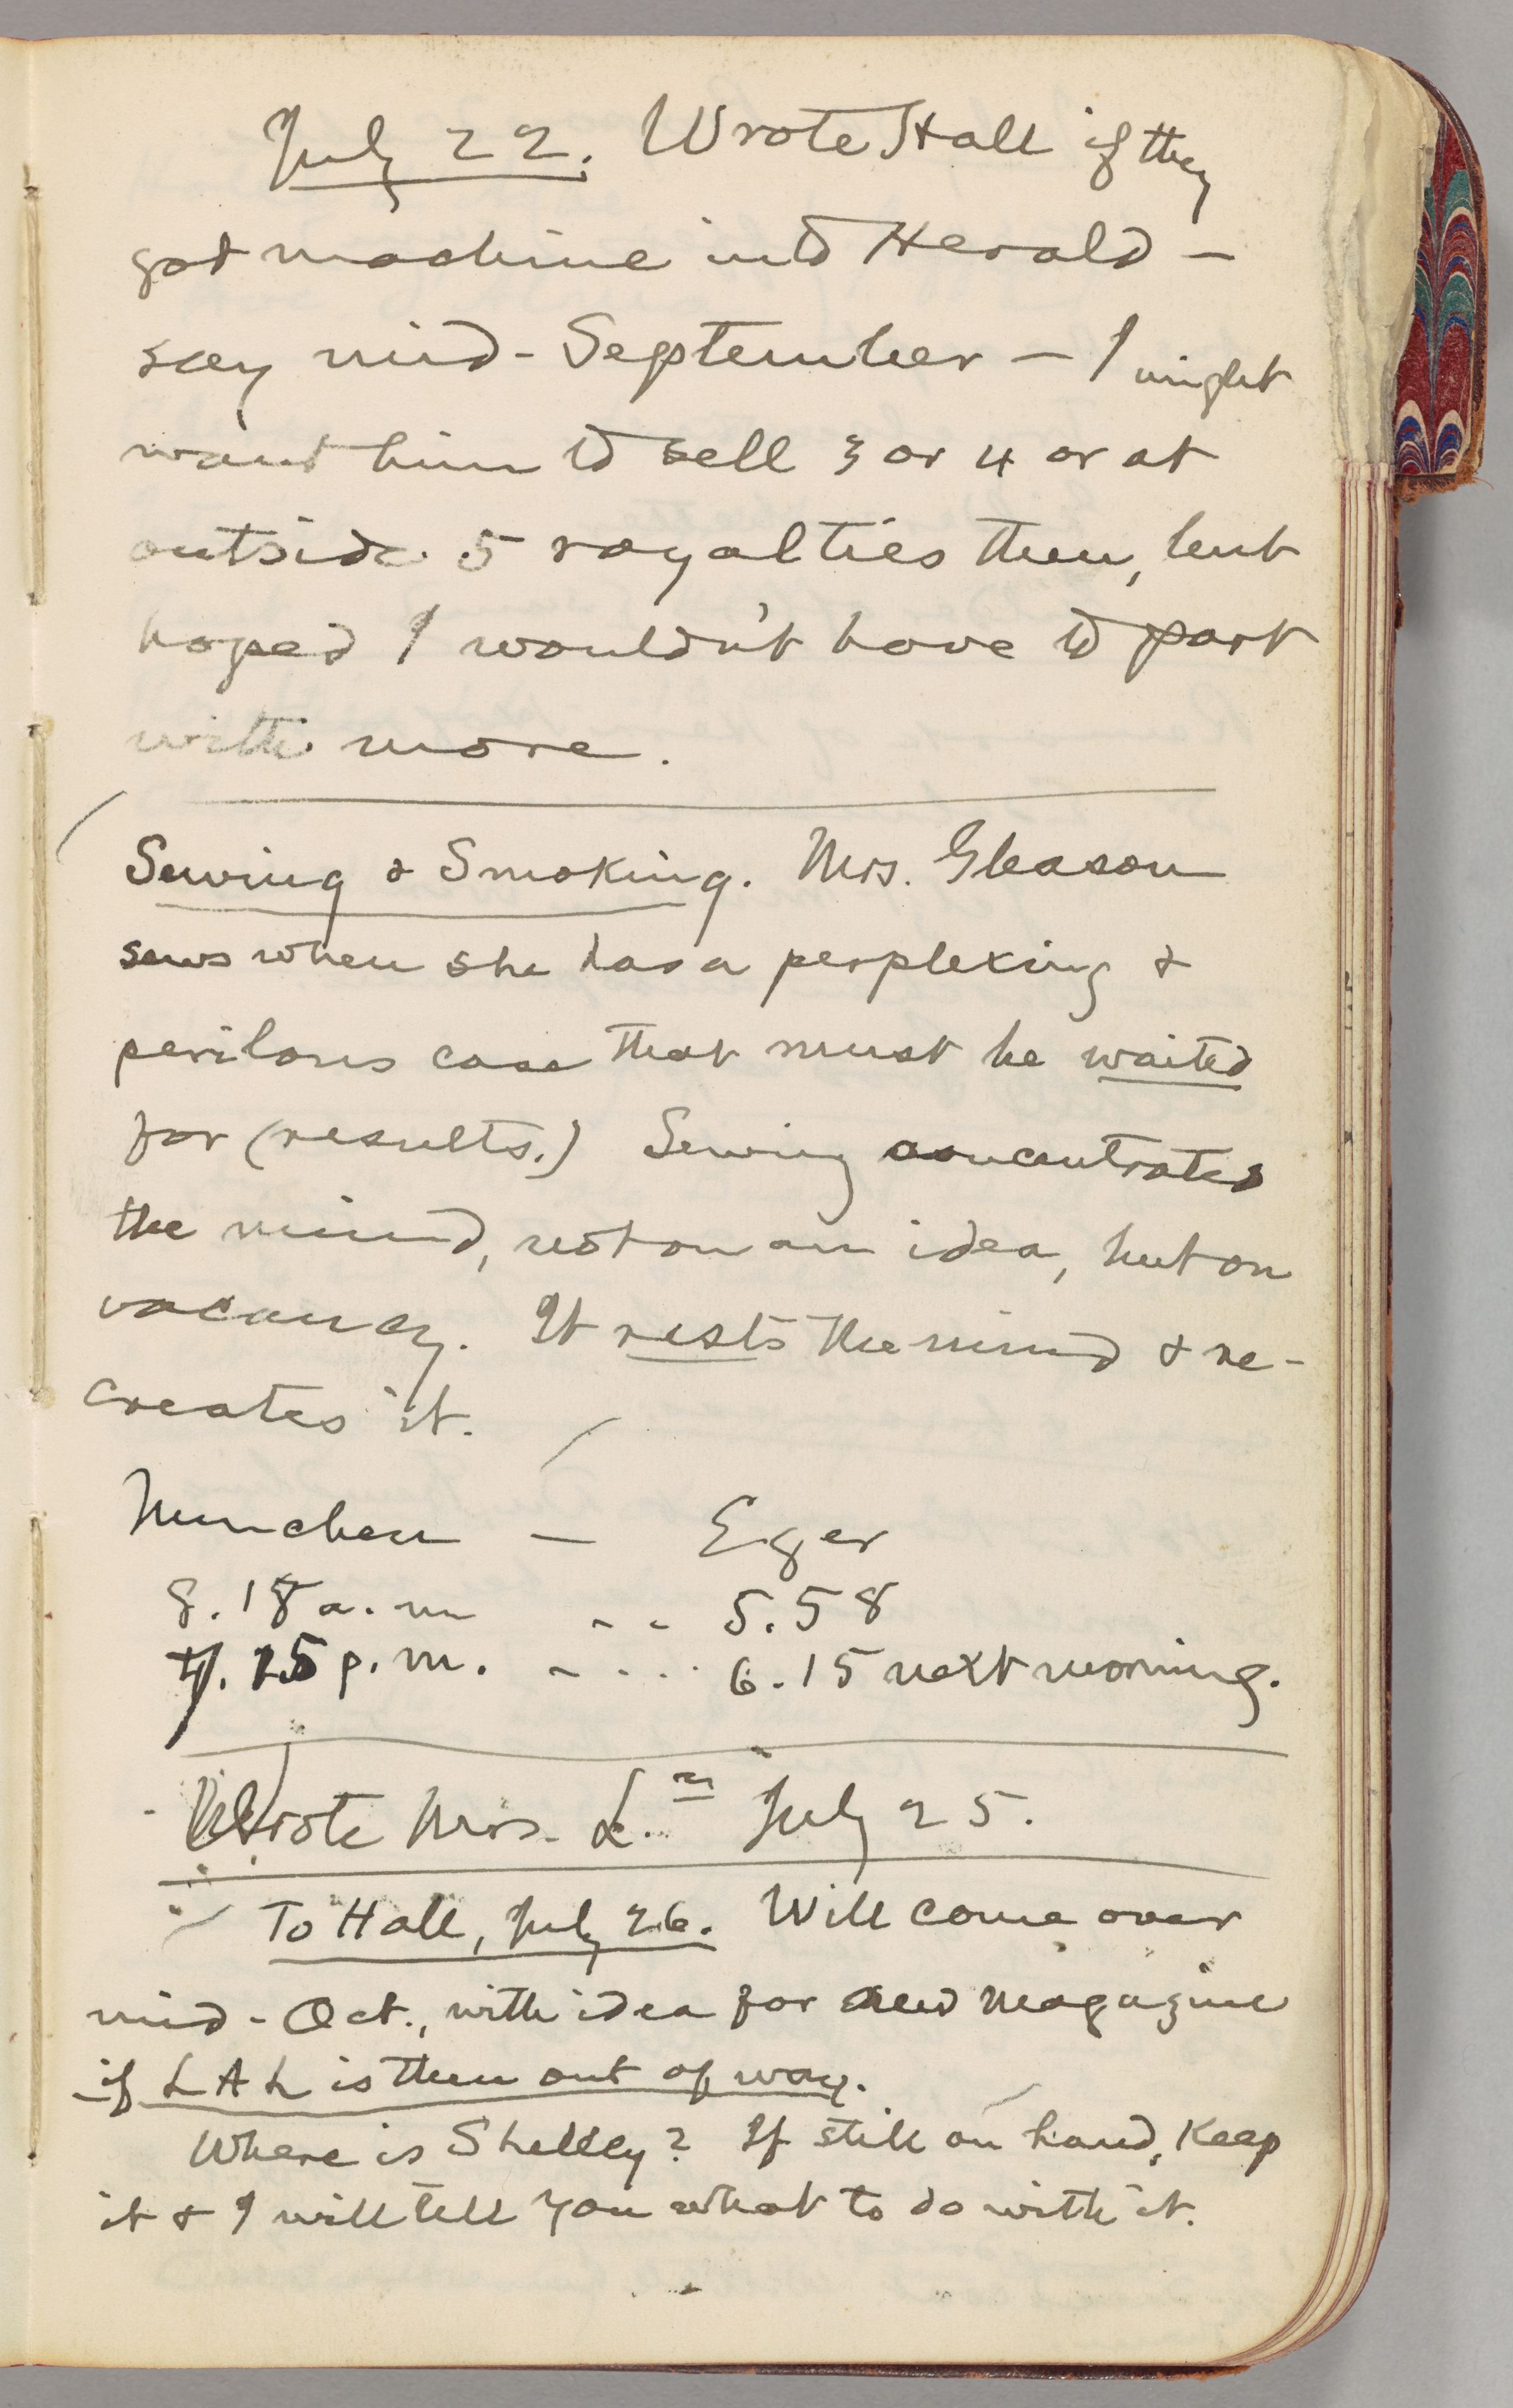 July 22. Wrote Hall if they
got machine into Herald —
say mid-September — I might
want him to sell 3 or 4 or at
outside 5 royalties then, but
hoped I wouldn't have to part
with more.
Sewing & Smoking. Mrs. Gleason
sews when she has a perplexing &
perilous case that must be waited
for (results.) Sewing concentrates
the mind, not on an idea, but on
vacancy. It rests the mind & re-
creates it.
Munchen — Eger
8.18 a.m - - 5.58
7.15 p.m. - . . . 6.15 next morning.
Wrote Mrs. L.n July 25.
To Hall, July 26. Will come over
mid-Oct., with idea for new Magazine
if LAL is then out of way.
Where is Shelley? If still on hand, keep
it & I will tell you what to do with it.